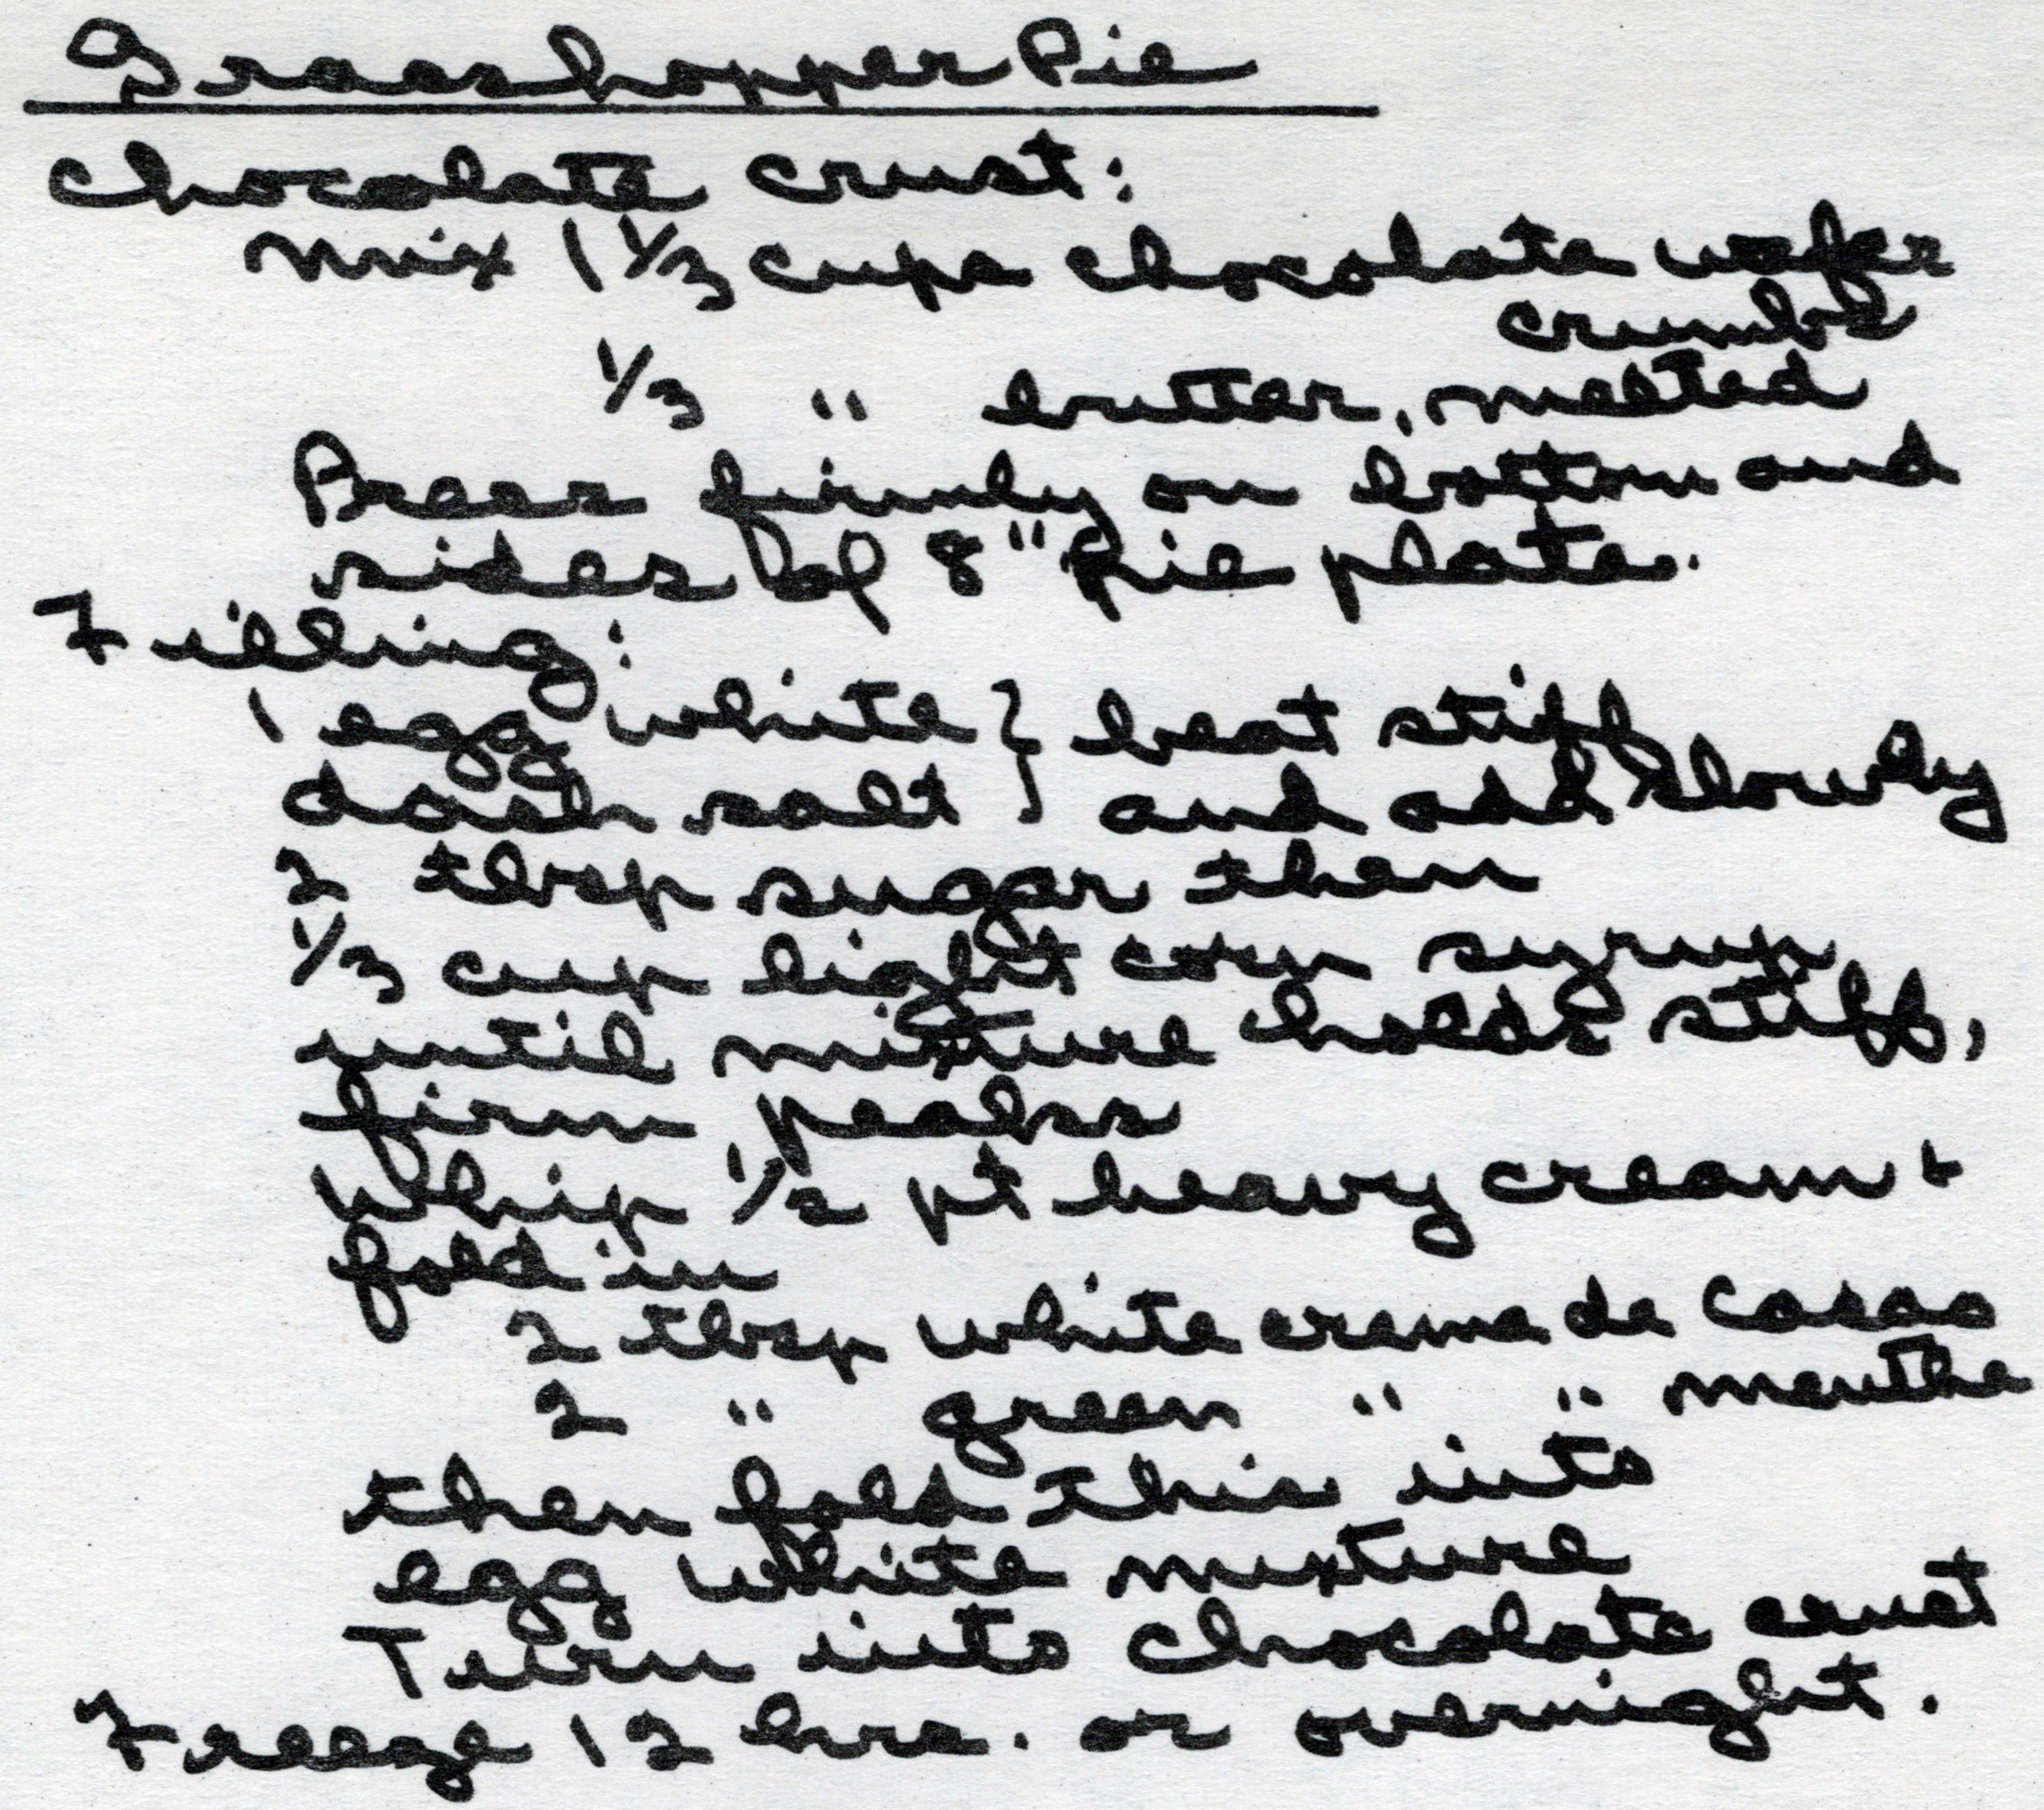 Grasshopper Pie
Chocolate crust:
mix 1 1/3 cups chocolate wafer
crumbs
1/3 " butter, melted
Press firmly on bottom and
sides of 8" pie plate.
Filling:
1 egg white } beat stiff
dash salt } and add slowly
2 tbsp sugar then
1/3 cup light corn syrup
until mixture holds stiff,
firm peaks
Whip 1/2 pt heavy cream +
fold in
2 tbsp white creme de Cacao
2 " green " " menthe
then fold this into
egg white mixture
Turn into chocolate crust
Freeze 12 hrs. or overnight.